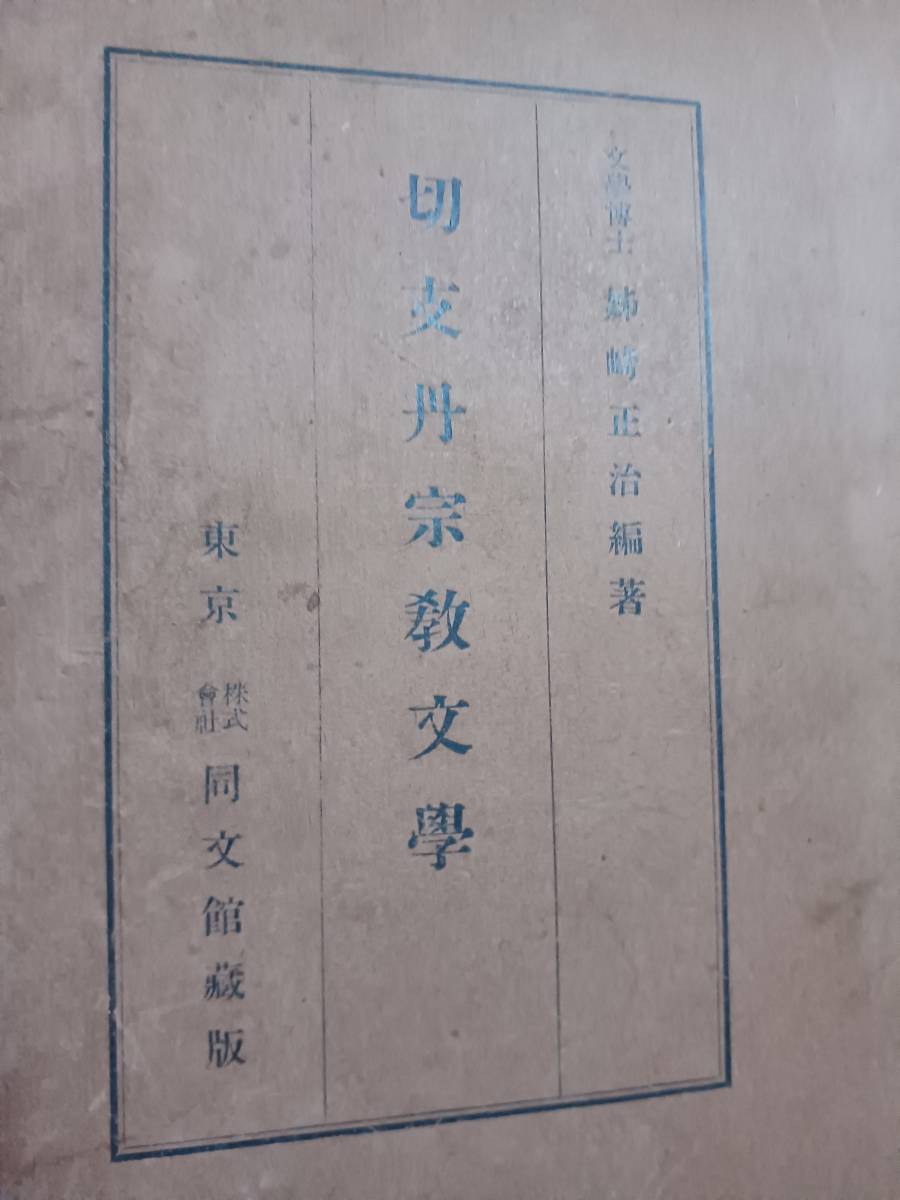 文學博士 姉崎正治編著
切支丹宗教文學
東京 株式會社 同文館藏版